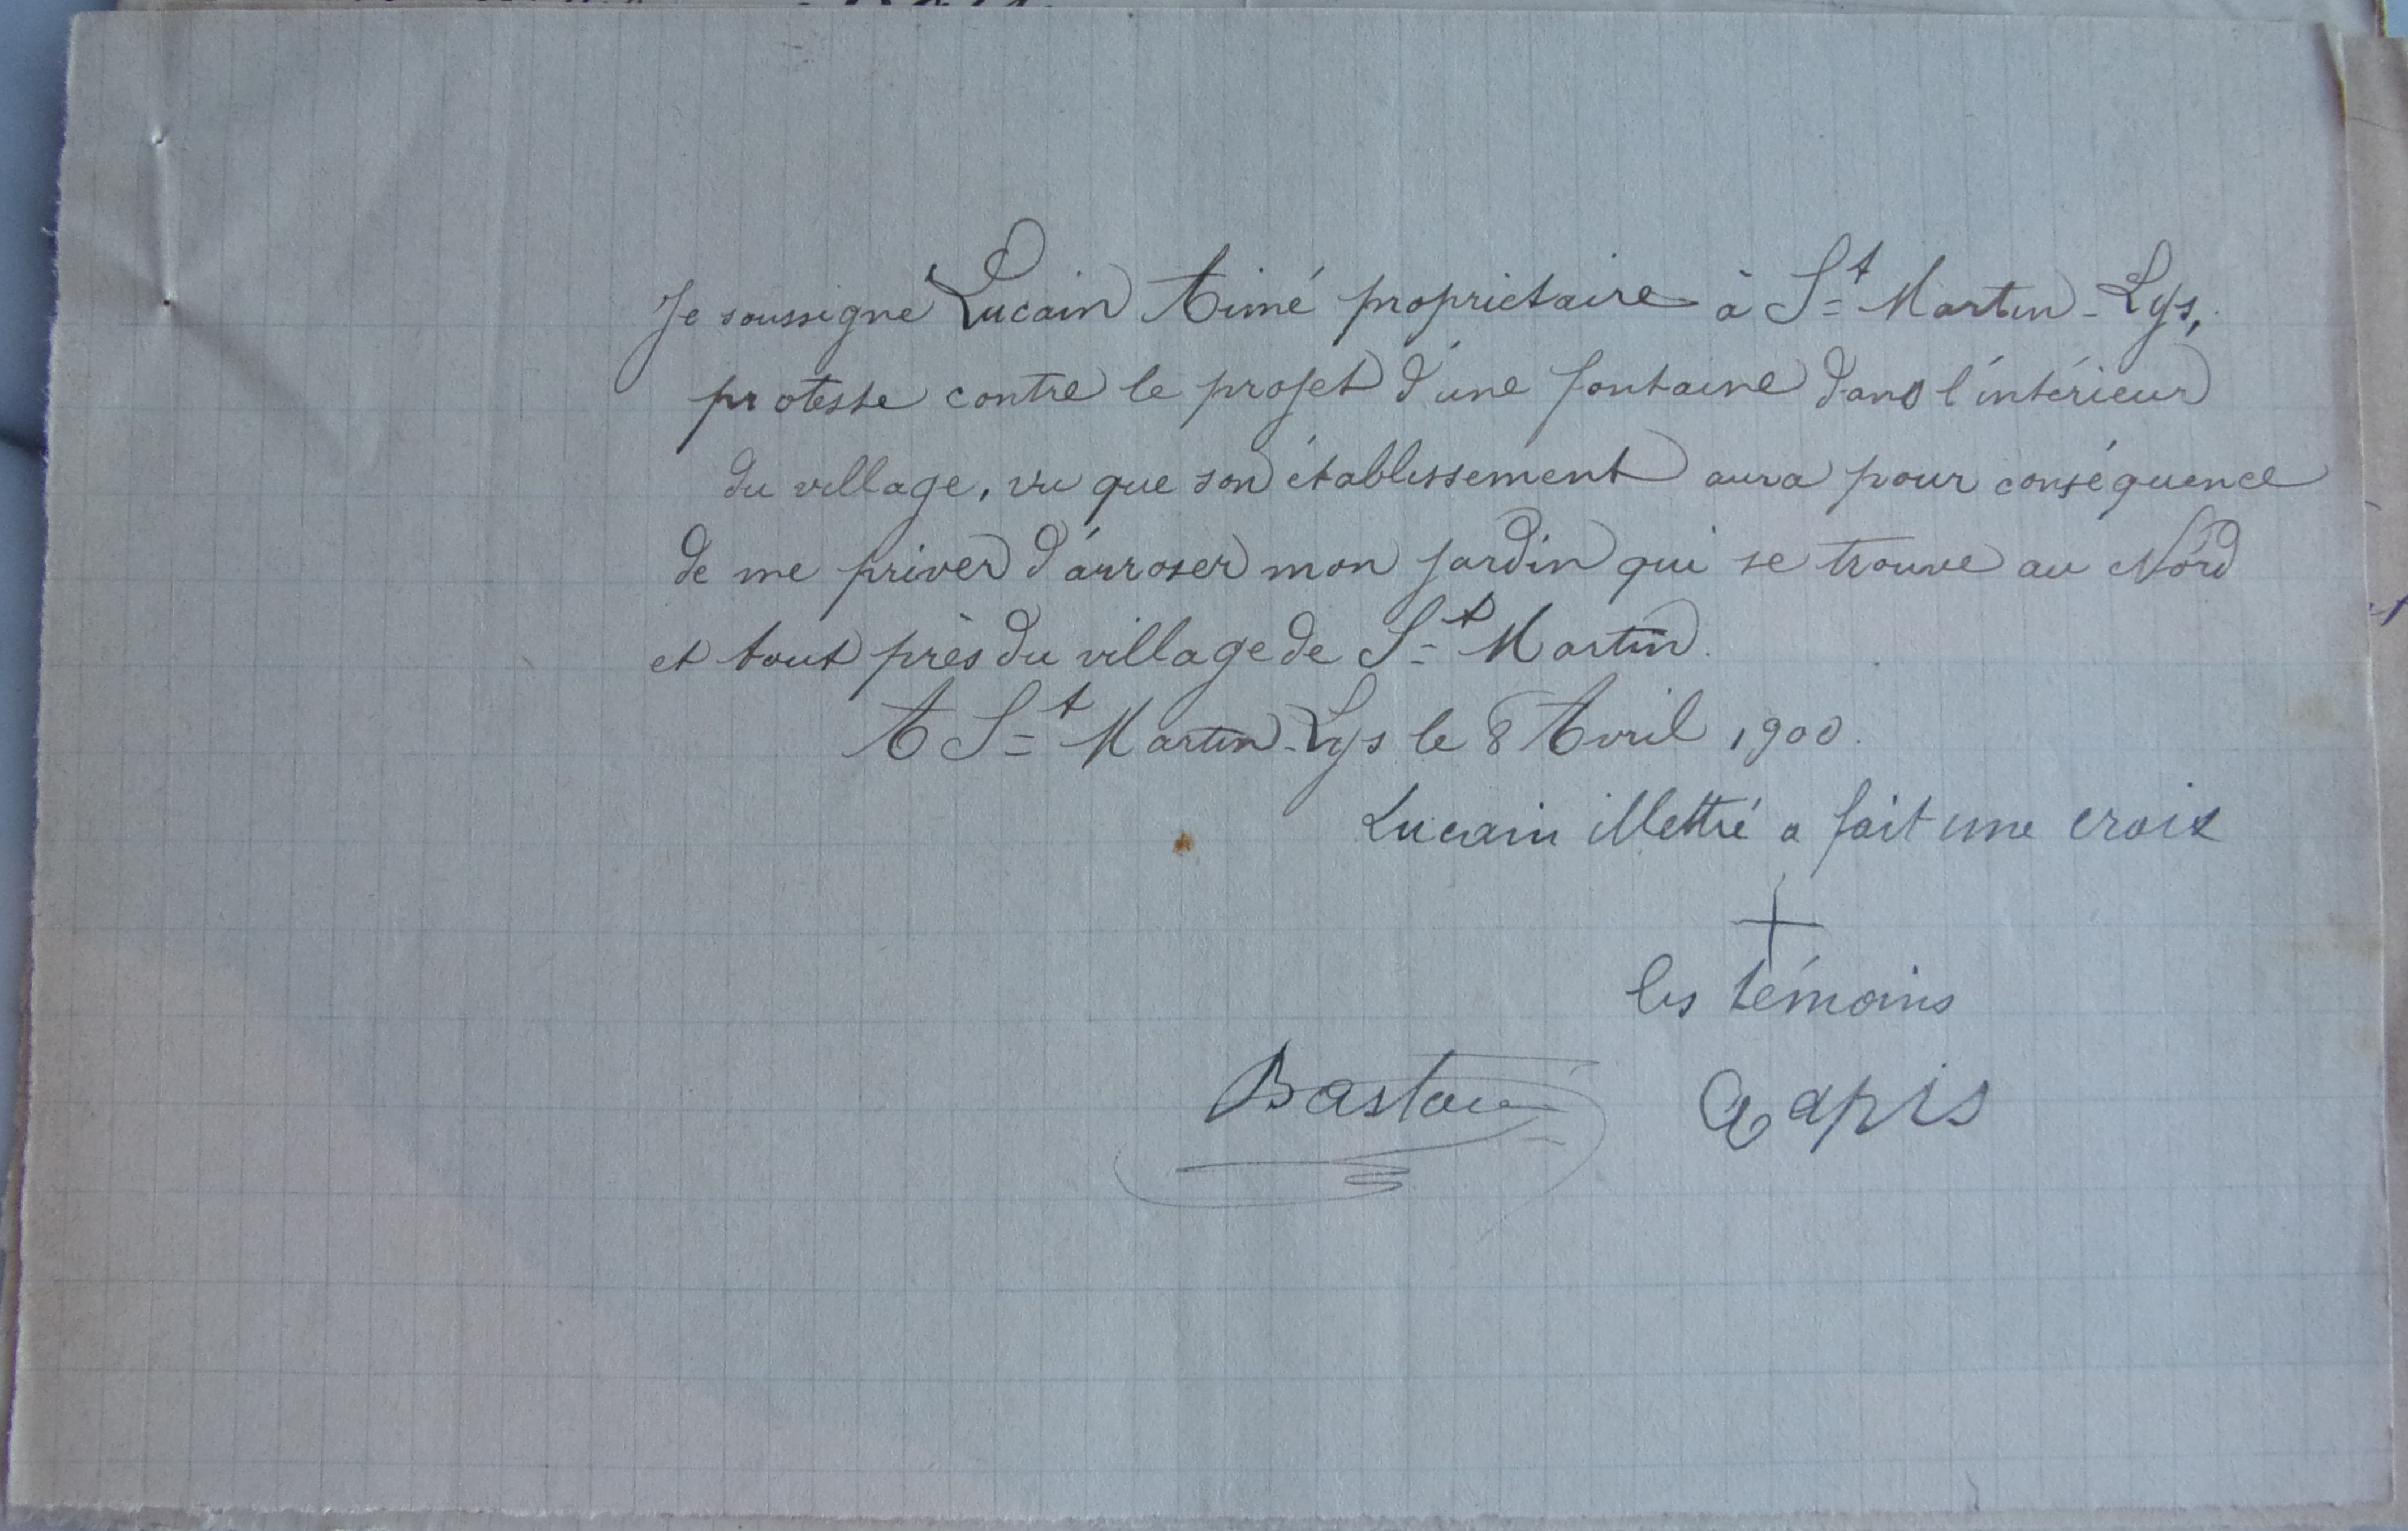 Je soussigné Lucain Aimé propriétaire à St Martin-Lys,
proteste contre le projet d'une fontaine dans l'intérieur
du village, vu que son établissement aura pour conséquence
de me priver d'arroser mon jardin qui se trouve au Nord
et tout près du village de St Martin.
A St Martin-Lys le 8 Avril 1900.
Lucain illettré a fait une croix
+
les témoins